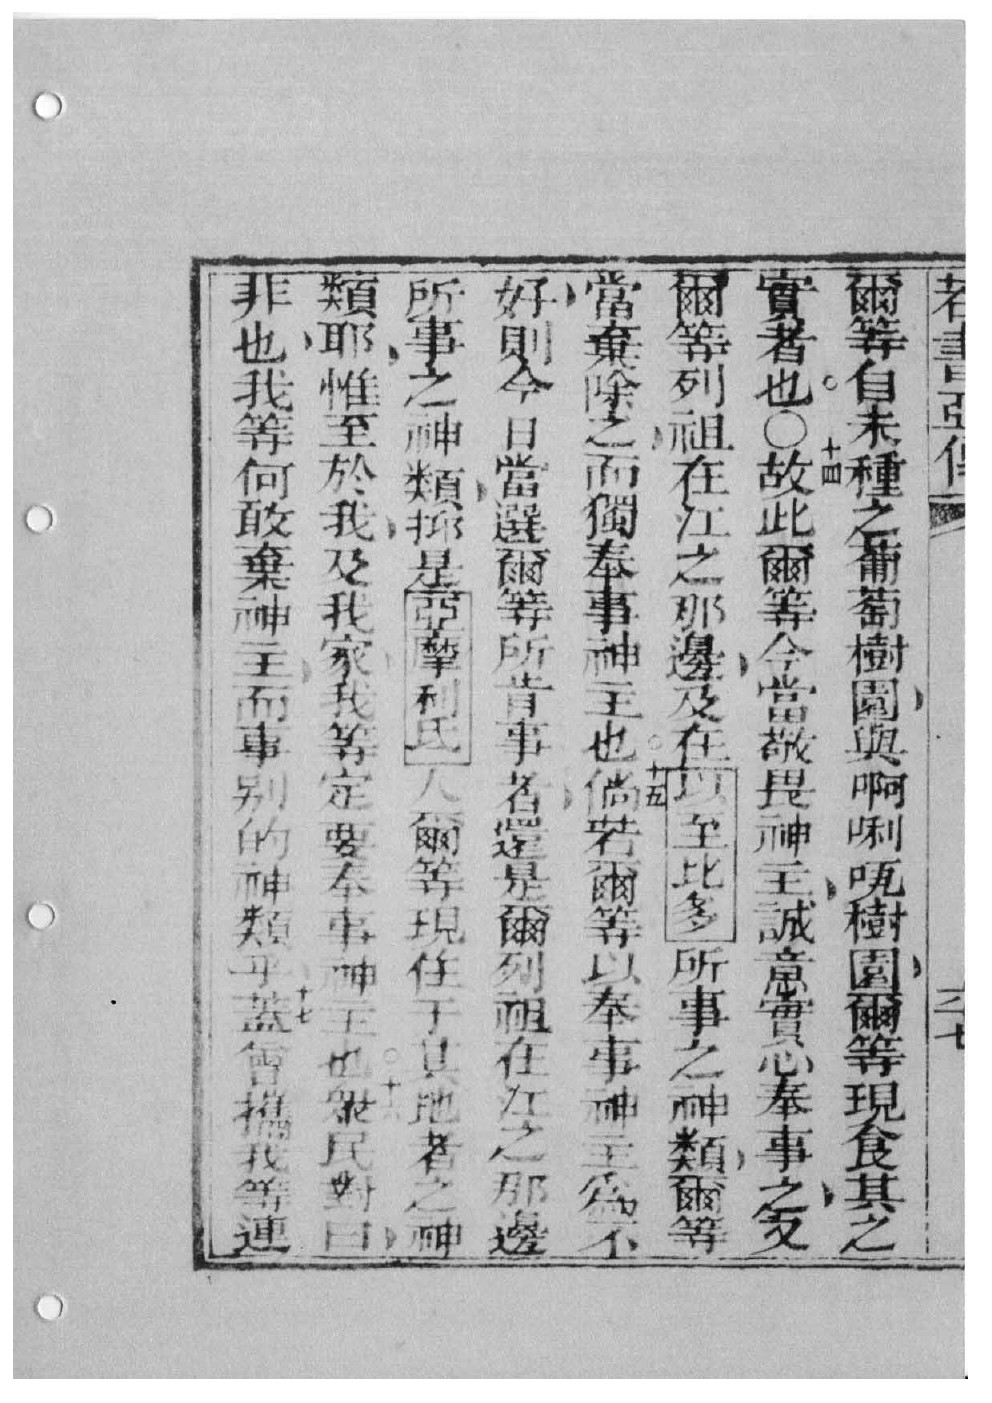 若書亞傳 二七
爾等自未種之葡萄樹園與啊唎𠯈樹園爾等現食其之
實者也○十四故此爾等今當敬畏神主誠意實心奉事之又
爾等列祖在江之那邊及在以至比多所事之神類爾等
當棄除之而獨奉事神主也○十五倘若爾等以奉事神主為不
好則今日當選爾等所肯事者還是爾列祖在江之那邊
所事之神類抑是亞摩利氏人爾等現住于其地者之神
類耶惟至於我及我家我等定要奉事神主也○十六眾民對曰
非也我等何敢棄神主而事別的神類乎十七蓋曾攜我等連